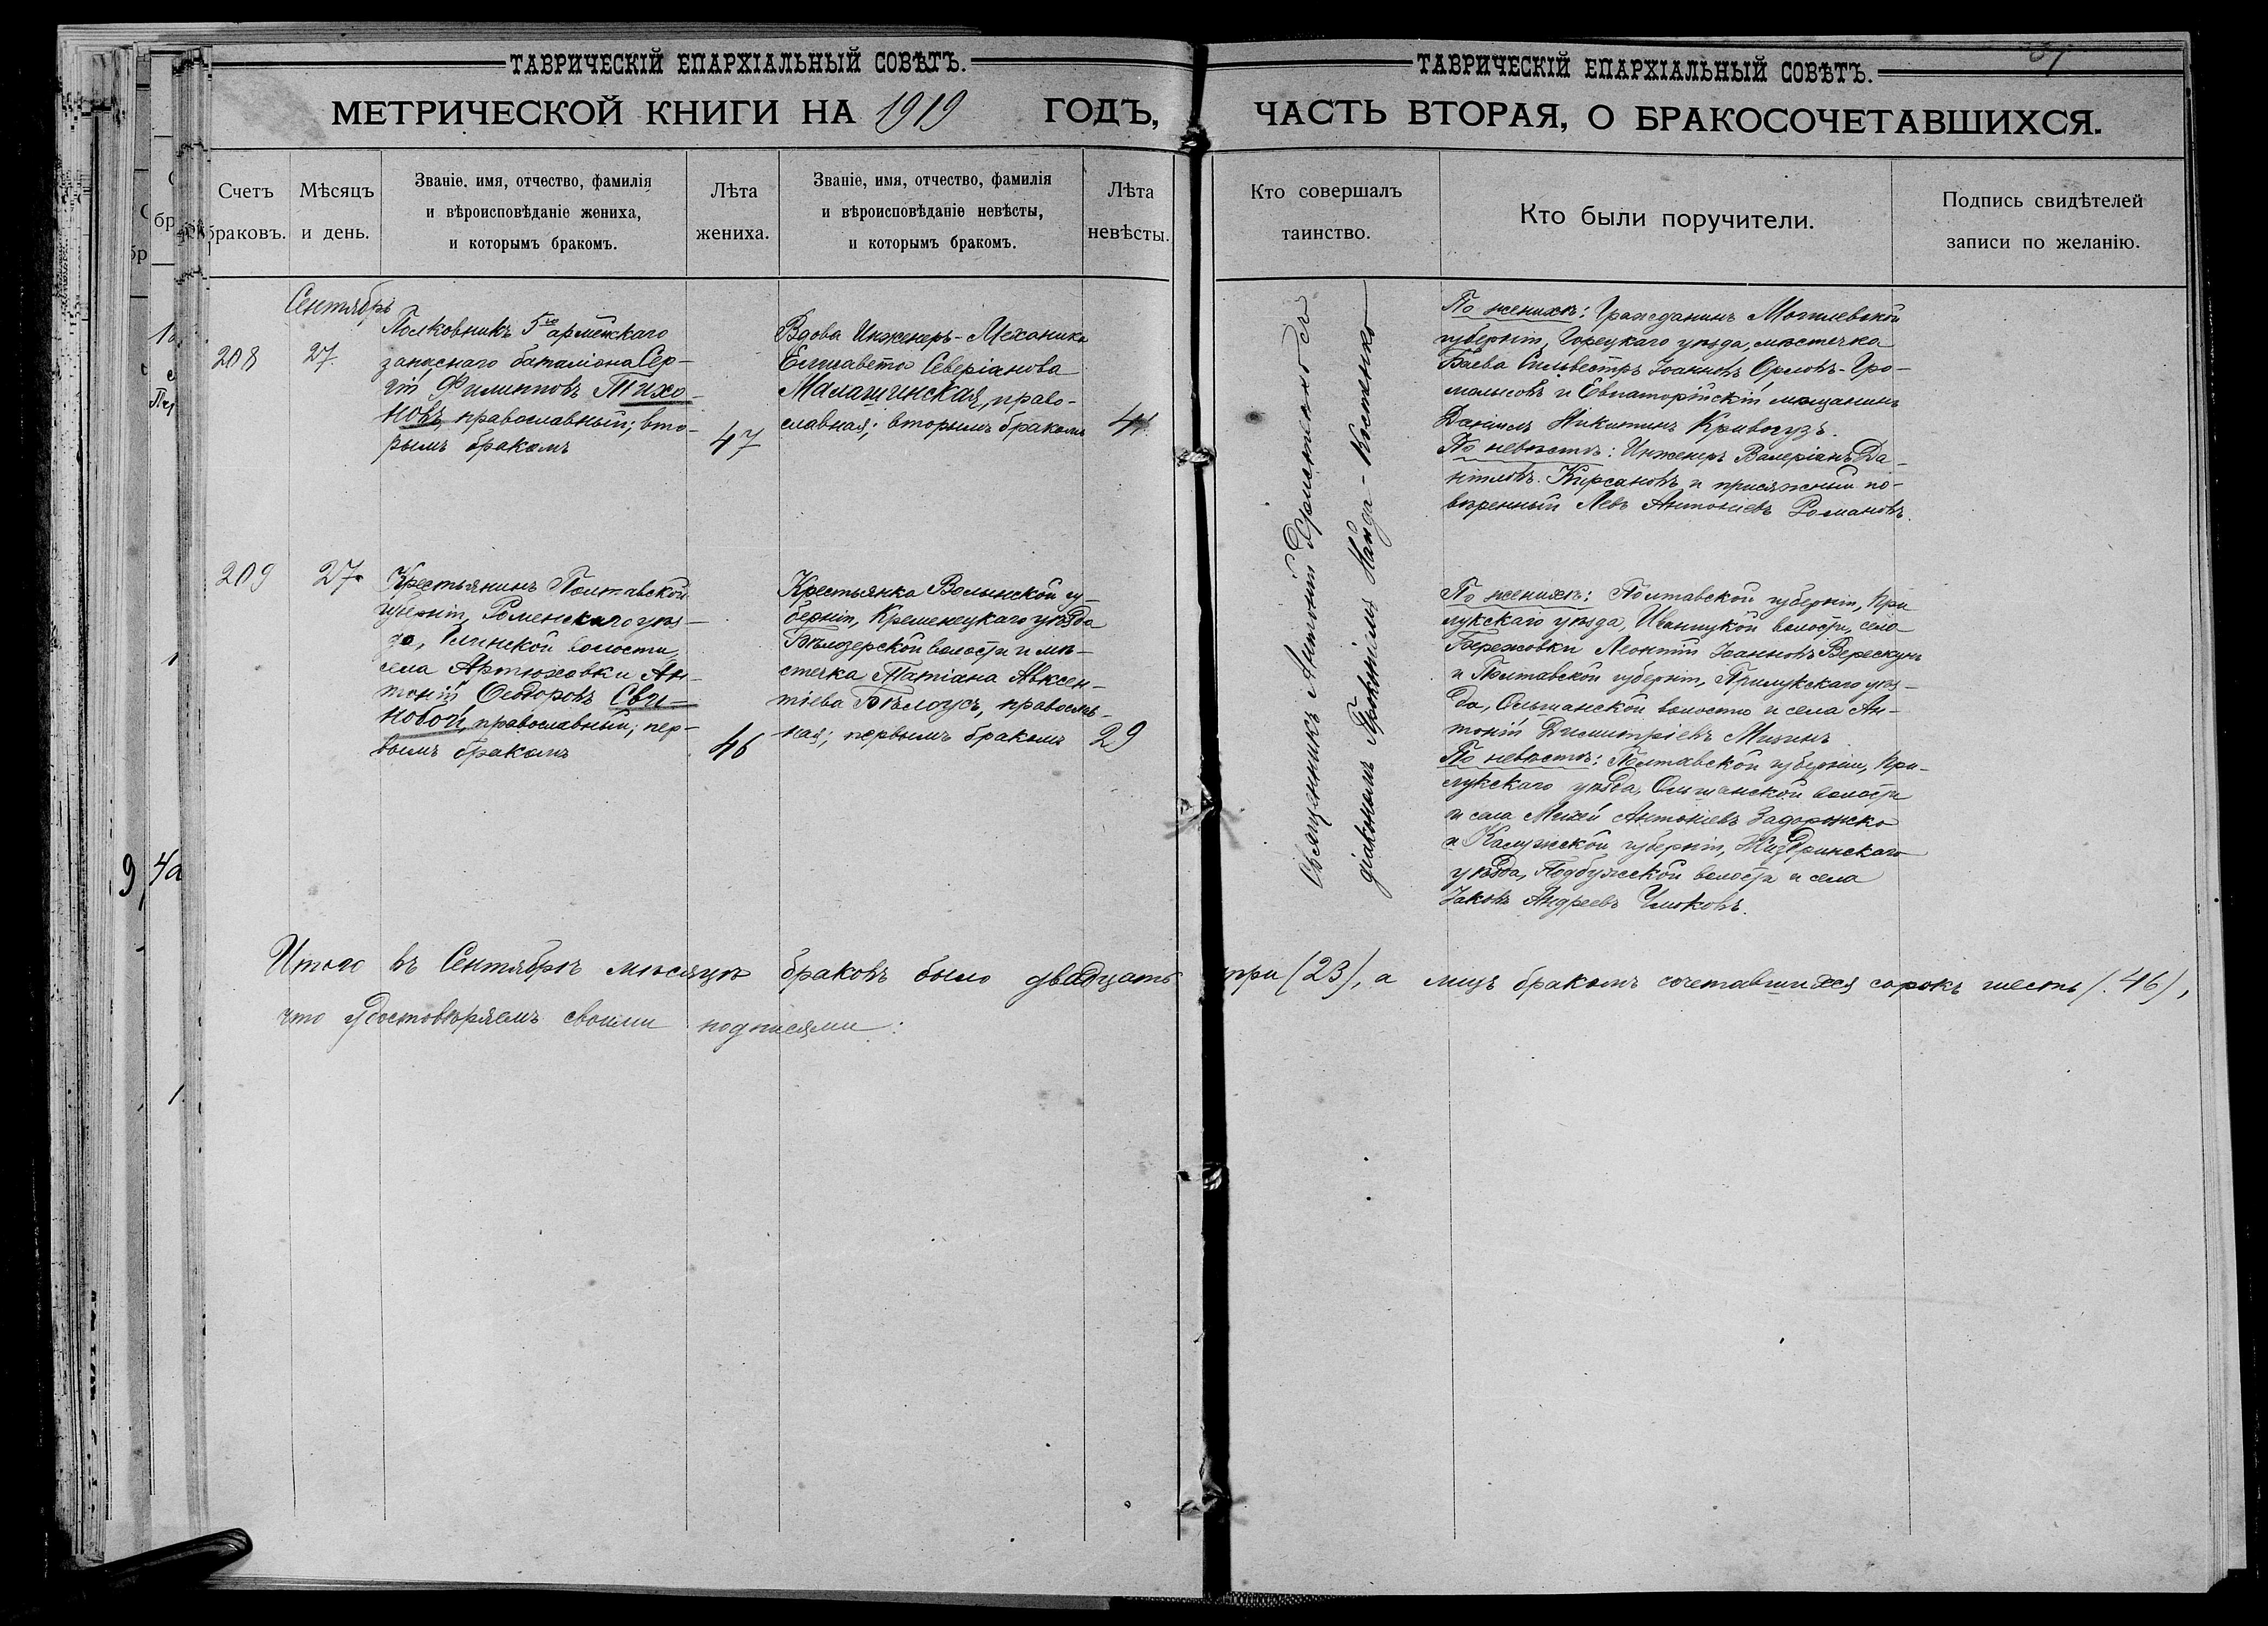 ТАВРИЧЕСКІЙ ЕПАРХІАЛЬНЫЙ СОВѢТЪ.
МЕТРИЧЕСКОЙ КНИГИ НА 1919 ГОДЪ,
Счетъ браковъ.
Мѣсяцъ и день.
Званіе, имя, отчество, фамилія
и вѣроисповѣданіе жениха,
и которымъ бракомъ.
Лѣта жениха.
Званіе, имя, отчество, фамилія
и вѣроисповѣданіе невѣсты,
и которымъ бракомъ.
Лѣта невѣсты.
Сентябрь
208
27
Полковникъ 5го армейскаго
запаснаго баталіона Сер-
гій Филипповъ Тихо-
новъ, православный; вто-
рымъ бракомъ
47
Вдова Инженеръ-Механика
Елисавета Северіанова
Малашинская, право-
славная; вторымъ бракомъ
41
209
27
Крестьянинъ Полтавской
губерніи, Роменскаго уѣз-
да, Глинской волости,
села Артюховки Ан-
тоній Ѳеодоровъ Сви-
нобой, православный; пер-
вымъ бракомъ
46
Крестьянка Волынской гу-
берніи, Кременецкаго уѣзда
Бѣлозерской волости и мѣ-
стечка Татіана Авксен-
тіева Бѣлоусъ, православ-
ная; первымъ бракомъ
29
Итого въ Сентябрѣ мѣсяцѣ браковъ было двадцать три (23), а лицъ бракомъ сочетавшихся сорокъ шесть (46),
что удостовѣряемъ своими подписями:
ТАВРИЧЕСКІЙ ЕПАРХІАЛЬНЫЙ СОВѢТЪ.
ЧАСТЬ ВТОРАЯ, О БРАКОСОЧЕТАВШИХСЯ.
Кто совершалъ таинство.
Кто были поручители.
Подпись свидѣтелей
записи по желанію.
Священникъ Антоній съ
діакономъ Найда-Костенко
По женихѣ: Гражданинъ Могилевской
губерніи, Горецкаго уѣзда, мѣстечка
Баева Сильвестръ Іоанновъ Орловъ-Гро-
мыковъ и Евпаторійскій мѣщанинъ
Даніилъ Никитинъ Кривогузъ.
По невѣстѣ: Инженеръ Валеріанъ Да-
ніиловъ Кирсановъ и присяжный по-
вѣренный Левъ Антоніевъ Романовъ.
По женихѣ: Полтавской губерніи, При-
лукскаго уѣзда, Иваницкой волости, села
Бережовки Леонтій Іоанновъ Верескунъ
и Полтавской губерніи, Прилукскаго уѣз-
да, Ольшанской волости и села Ан-
тоній Димитріевъ
По невѣстѣ: Полтавской губерніи, При-
лукскаго уѣзда, Ольшанской волости
и села Антоніевъ Задорожко
и Калужской губерніи, Жиздринскаго
уѣзда, Подбужской волости и села
Іаковъ Андреевъ